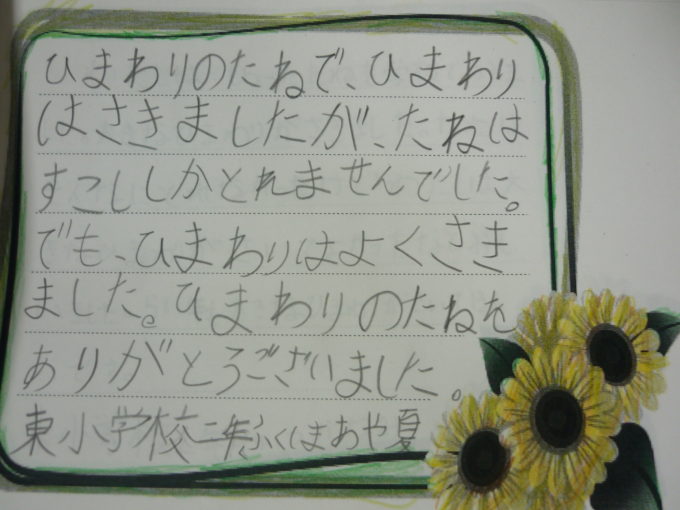 ひまわりのたねで、ひまわり
はさきましたが、たねは
すこししかとれませんでした。
でも、ひまわりはよくさき
ました。ひまわりのたねを
ありがとうございました。
東小学校二年ふくしまあや夏